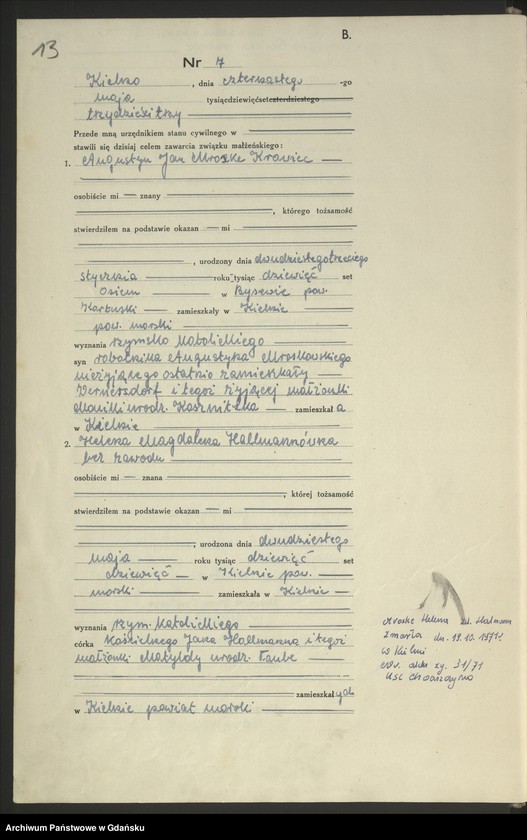 13
B.
Nr 7
Kielno, dnia czternastego -go
maja tysiącdziewięćsetczterdziestego
trzydzieści trzy
Przede mną urzędnikiem stanu cywilnego w
stawili się dzisiaj celem zawarcia związku małżeńskiego:
1. Augustyn Jan Mroske Krawiec
osobiście mi — znany
, którego tożsamość
stwierdziłem na podstawie okazan — mi
, urodzony dnia dwudziestegotrzeciego
stycznia roku tysiąc dziewięć set
osiem w Bysewie pow.
Kartuski zamieszkały w Kielnie
pow. morski
wyznania rzymsko katolickiego
syn robotnika Augustyna Mroskowskiego
nieżyjącego ostatnio zamieszkały
i tegoż żyjącej małżonki
urodz. zamieszkał a
w Kielnie
2. Helena Magdalena Hallmannówna
bez zawodu
osobiście mi — znana
, której tożsamość
stwierdziłem na podstawie okazan — mi
, urodzona dnia dwudziestego
maja roku tysiąc dziewięć set
dziewięć w Kielnie pow.
morski zamieszkała w Kielnie
wyznania rzym. katolickiego
córka Kościelnego Jana Hallmanna i tegoż
małżonki Matyldy urodz. Taube
zamieszkałych
w Kielnie powiat morski
Mroske Helena zd. Halmann
zmarła dn. 19.10.1971
w Kielni
akt zg. 31/71
USC Chwaszczyno
Archiwum Państwowe w Gdańsku